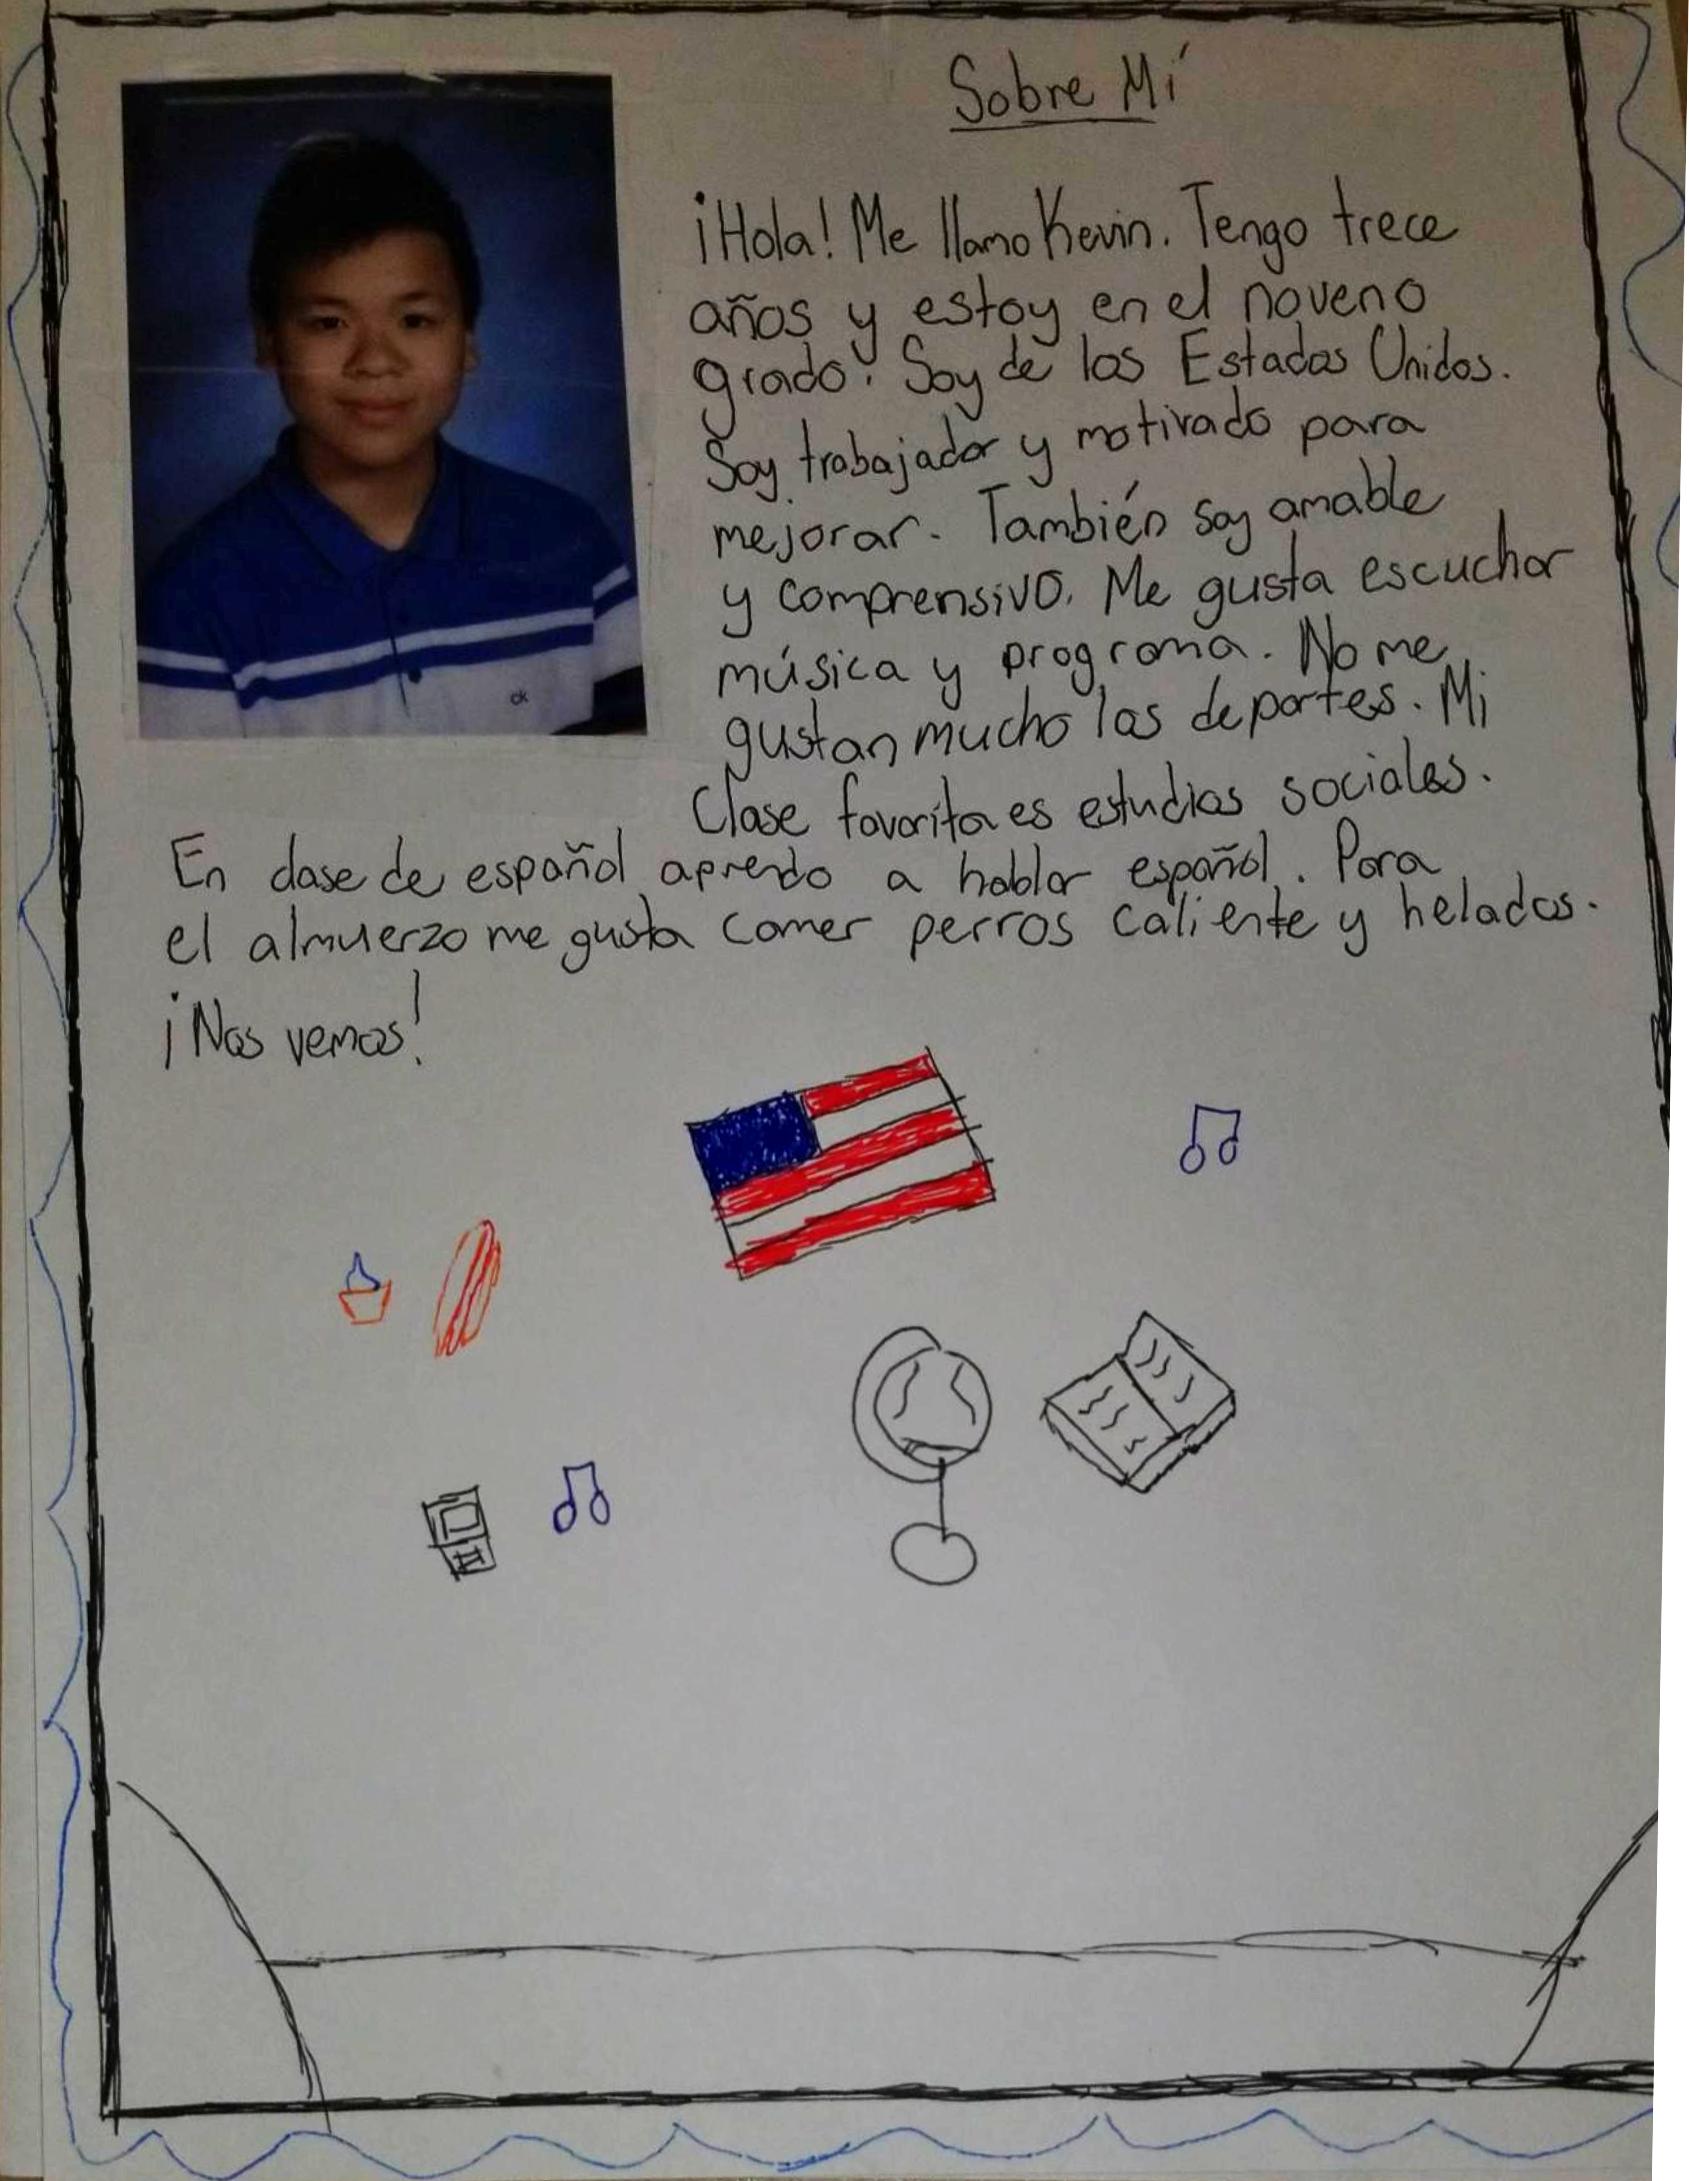 Sobre Mí
¡Hola! Me llamo Kevin. Tengo trece
años y estoy en el noveno
grado. Soy de los Estados Unidos.
Soy trabajador y motivado para
mejorar. También soy amable
y comprensivo. Me gusta escuchar
música y programa. No me
gustan mucho los deportes. Mi
Clase favorita es estudios sociales.
En clase de español aprendo a hablar español. Para
el almuerzo me gusta comer perros caliente y helados.
¡Nos vemos!
ck